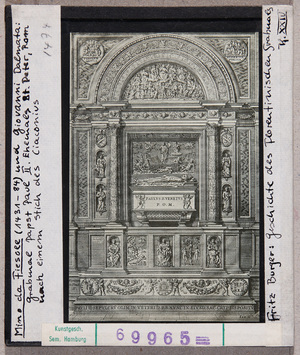 Mino da Fiesole (1431-84) und Giovanni Dalmata:
Grabmal Papst Paul II. Ehemals St. Peter, Rom
Nach einem Stich des Ciaconius
1474
PAULUS VENETUS
PON
Fritz Burger: Geschichte des Florentinischen Grabmals
T. XXIV
Kunstgesch.
Sem. Hamburg
69965